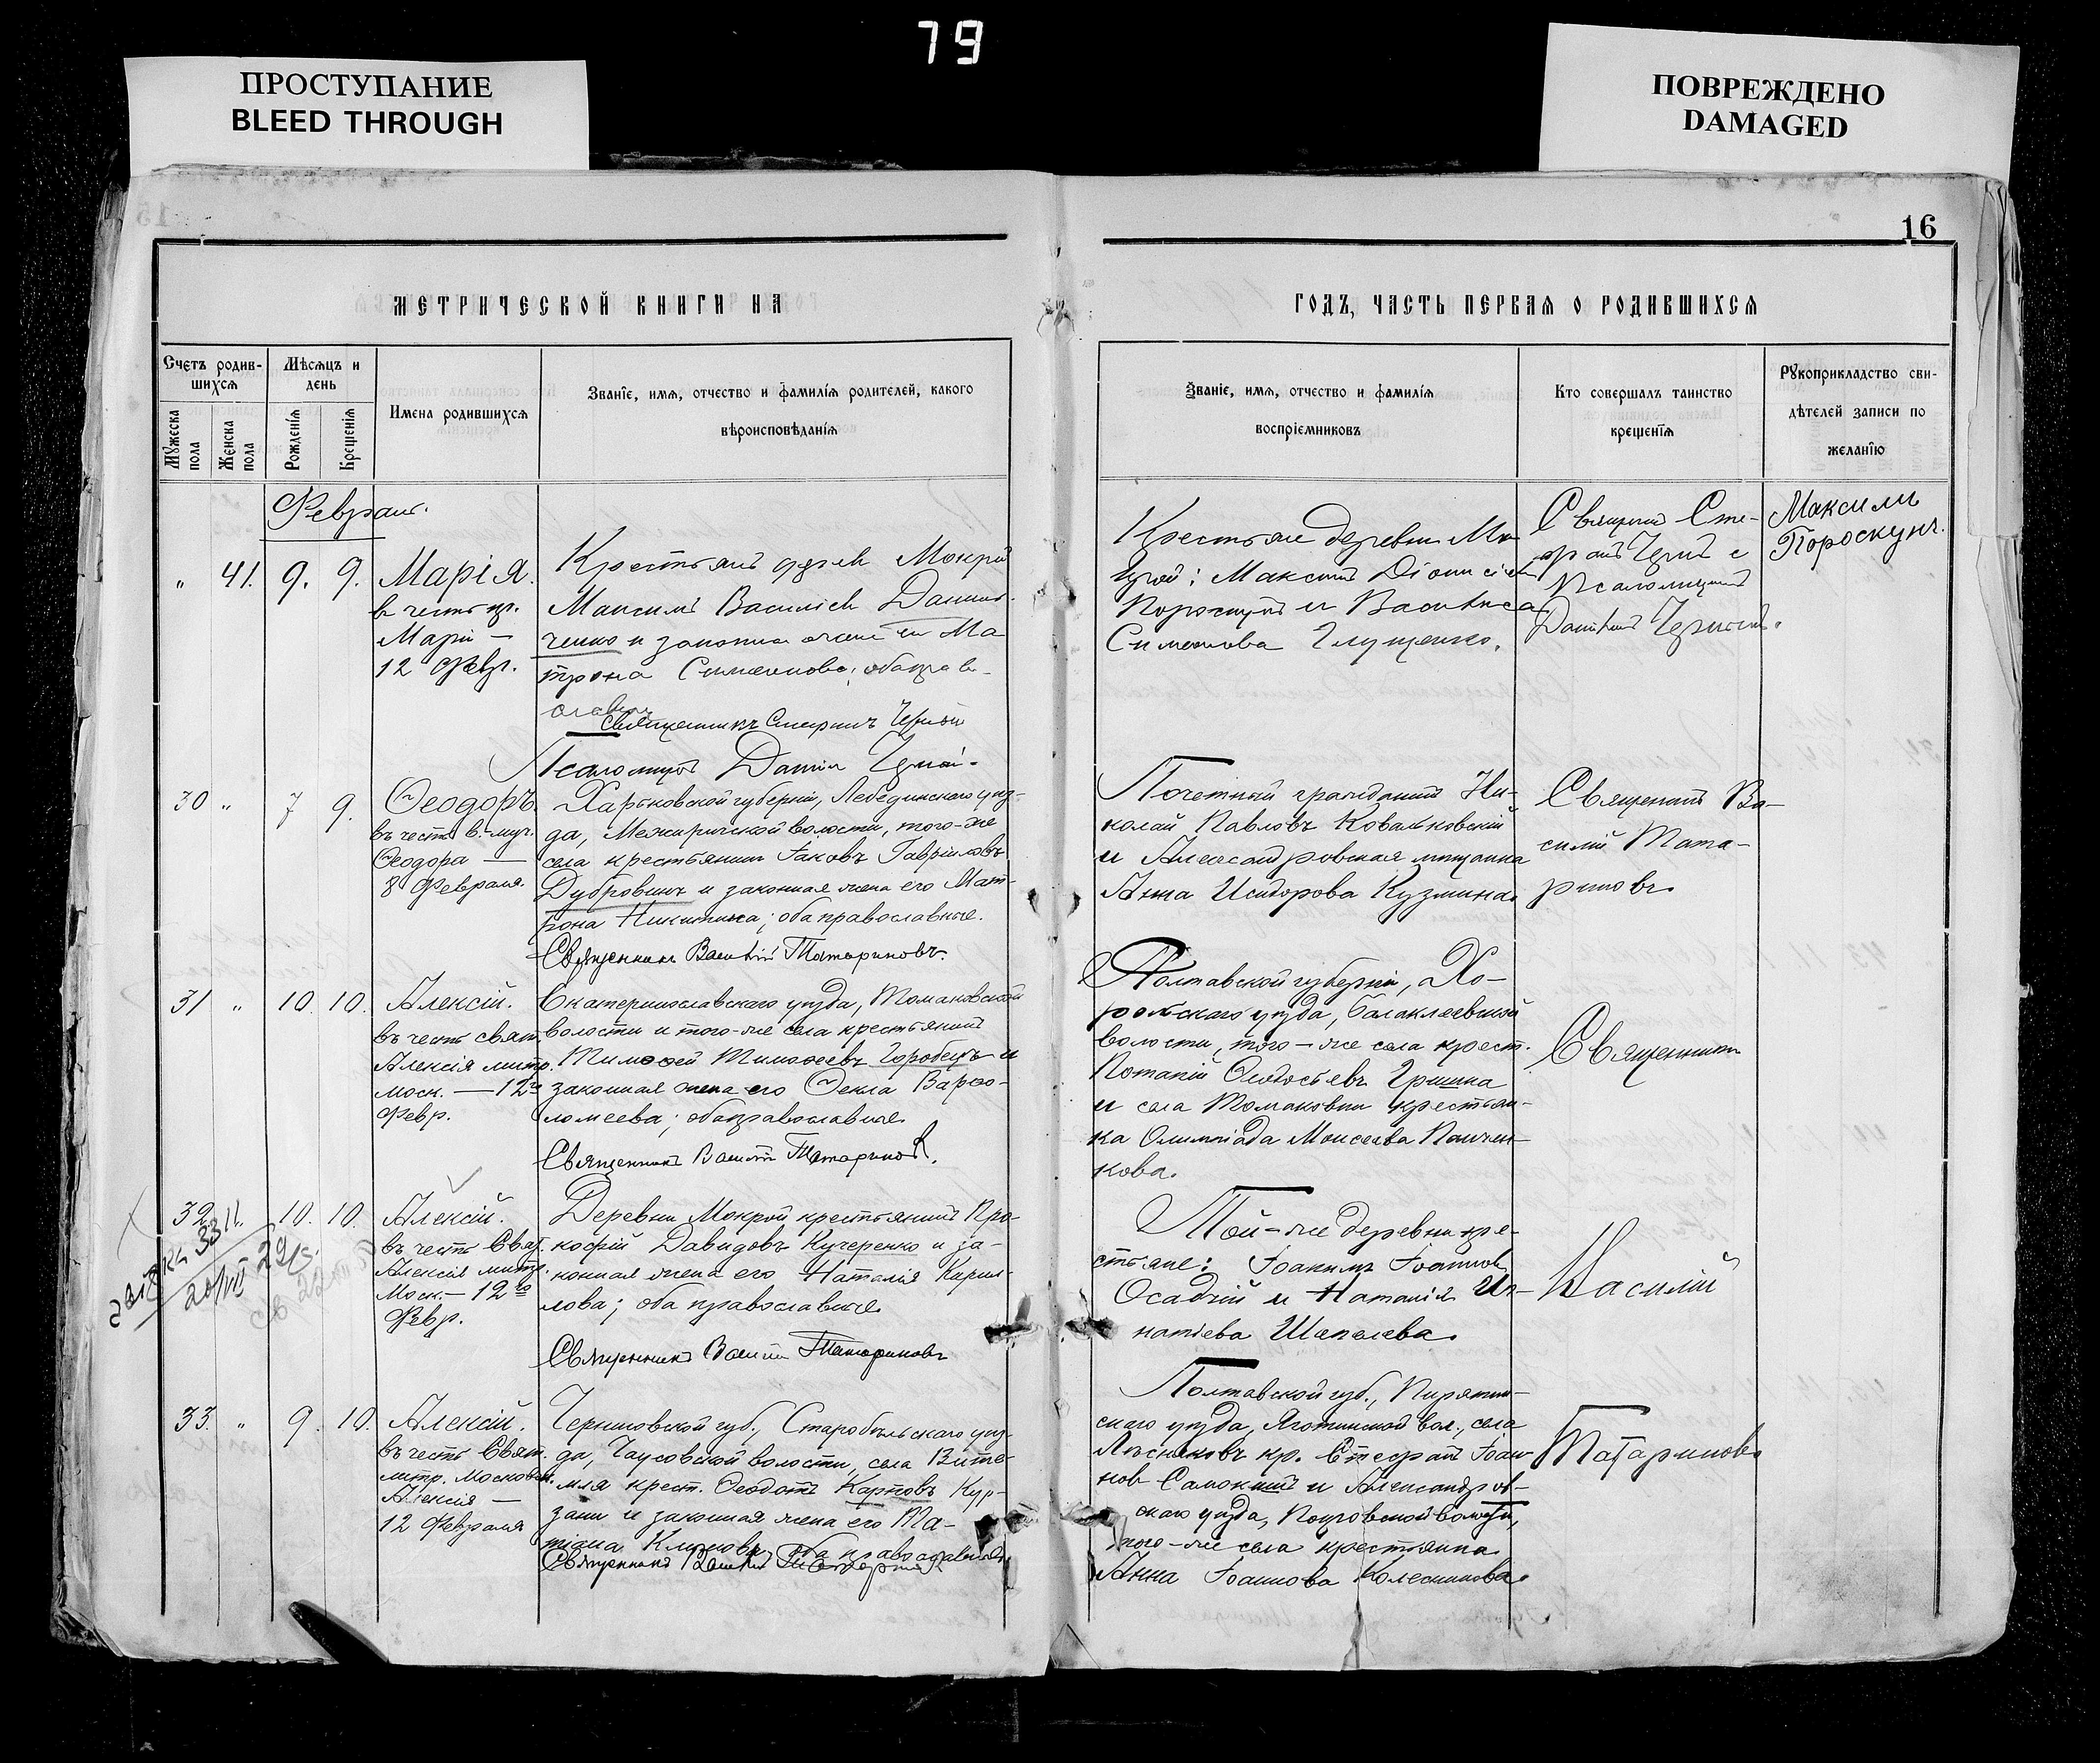 79
ПРОСТУПАНИЕ
BLEED THROUGH
ПОВРЕЖДЕНО
DAMAGED
16
МЕТРИЧЕСКОЙ КНИГИ НА
ГОДЪ, ЧАСТЬ ПЕРВАЯ О РОДИВШИХСЯ
Счетъ родив-
шихся
Мѣсяцъ и
день
Мужеска
пола
Женска
пола
Рожденія
Крещенія
Имена родившихся
Званіе, имя, отчество и фамилія родителей, какого
вѣроисповѣданія
Званіе, имя, отчество и фамилія
воспріемниковъ
Кто совершалъ таинство
крещенія
Рукоприкладство сви-
дѣтелей записи по
желанію
Февраль.
" 41. 9. 9.
Марія.
в честь пр.
Маріи —
12 Февр.
Крестьянъ дерев Мокрой
Максимъ Василіев Данил-
ченко и законная жена его Ма
трона Симеонова; обаправ-
славны
Священникъ Стефанъ Черный
Псаломщикъ Даніил Черный.
Крестьяне деревни Мо
крой: Максимъ Діонисіев
Пороскунъ и Василиса
Симеонова Глущенко.
Священникъ Сте-
фанъ Черный с
Псаломщикомъ
Даніиломъ Чернымъ.
Максимъ
Пороскунъ.
30 " 7 9.
Ѳеодоръ.
въ честь в. муч.
Ѳеодора —
8 Февраля.
Харьковской губерніи, Лебединскаго уѣз-
да, Межиричской волости, того-же
села крестьянинъ Іаковъ Гавріиловъ
Дубровинъ и законная жена его Мат-
рона Никитина; оба православные.
Священникъ Василій Татариновъ.
Почетный гражданинъ Ни-
колай Павловъ Ковальковскій
и Александровская мѣщанка
Анна Исидорова Кузмина.
Священникъ Ва-
силій Тата-
риновъ.
31 " 10. 10.
Алексій.
въ честь свят.
Алексія митр.
моск. — 12го
Февр.
Екатеринославскаго уѣзда, Томаковской
волости и того-же села крестьянинъ
Тимоѳей Тимоѳеевъ Горобецъ и
законная жена его Ѳекла Варѳо-
ломеева; оба православные.
Священникъ Василій Татариновъ.
Полтавской губерніи, Хо-
рольскаго уѣзда, Балаклеевской
волости, того-же села крест.
Потапій Ѳеодосьевъ Гришка
и села Томаковки крестьян-
ка Олимпіада Моисеева Панчен-
кова.
Священникъ
32 " 10. 10.
Алексій.
въ честь Свят.
Алексія митр.
Моск. — 12го
Февр.
Деревни Мокрой крестьянинъ Про-
кофій Давидовъ Кучеренко и за-
конная жена его Наталія Кирил-
лова; оба православные.
Священникъ Василій Татариновъ
Той-же деревни кре-
стьяне: Іоакимъ Іоанновъ
Осадчій и Наталія Иг-
натіева Шапалева.
Василій
33. " 9. 10.
Алексій.
въ честь Свят.
митр. Московск.
Алексія —
12 Февраля
Черниговской губ., Старобѣльскаго уѣз-
да, Чаусовской волости, села Вите-
мля крест. Ѳеодотъ Карповъ Кур-
зани и законная жена его Та-
тіана Климова; оба православные.
Священникъ Василій Татариновъ
Полтавской губ., Пирятин-
скаго уѣзда, Яготинской вол., села
Лѣсняковъ кр. Стефанъ Іоан-
новъ Самокиш и Александров-
скаго уѣзда, Покровской волости,
того-же села крестьянка
Анна Іоаннова Колесникова.
Татариновъ